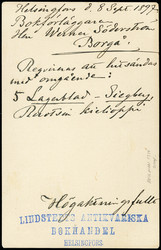 Helsingfors d. 8 Sept. 1897.
Bokförläggaren
Herr Werner Söderström
Borgå.
Requireras att hitsändas
med omgående:
5 Lagerblad - Siegberg,
Ruotsin kielioppi
Högaktningsfullt
LINDSTEDTS ANTIKVARISKA
BOKHANDEL
HELSINGFORS.